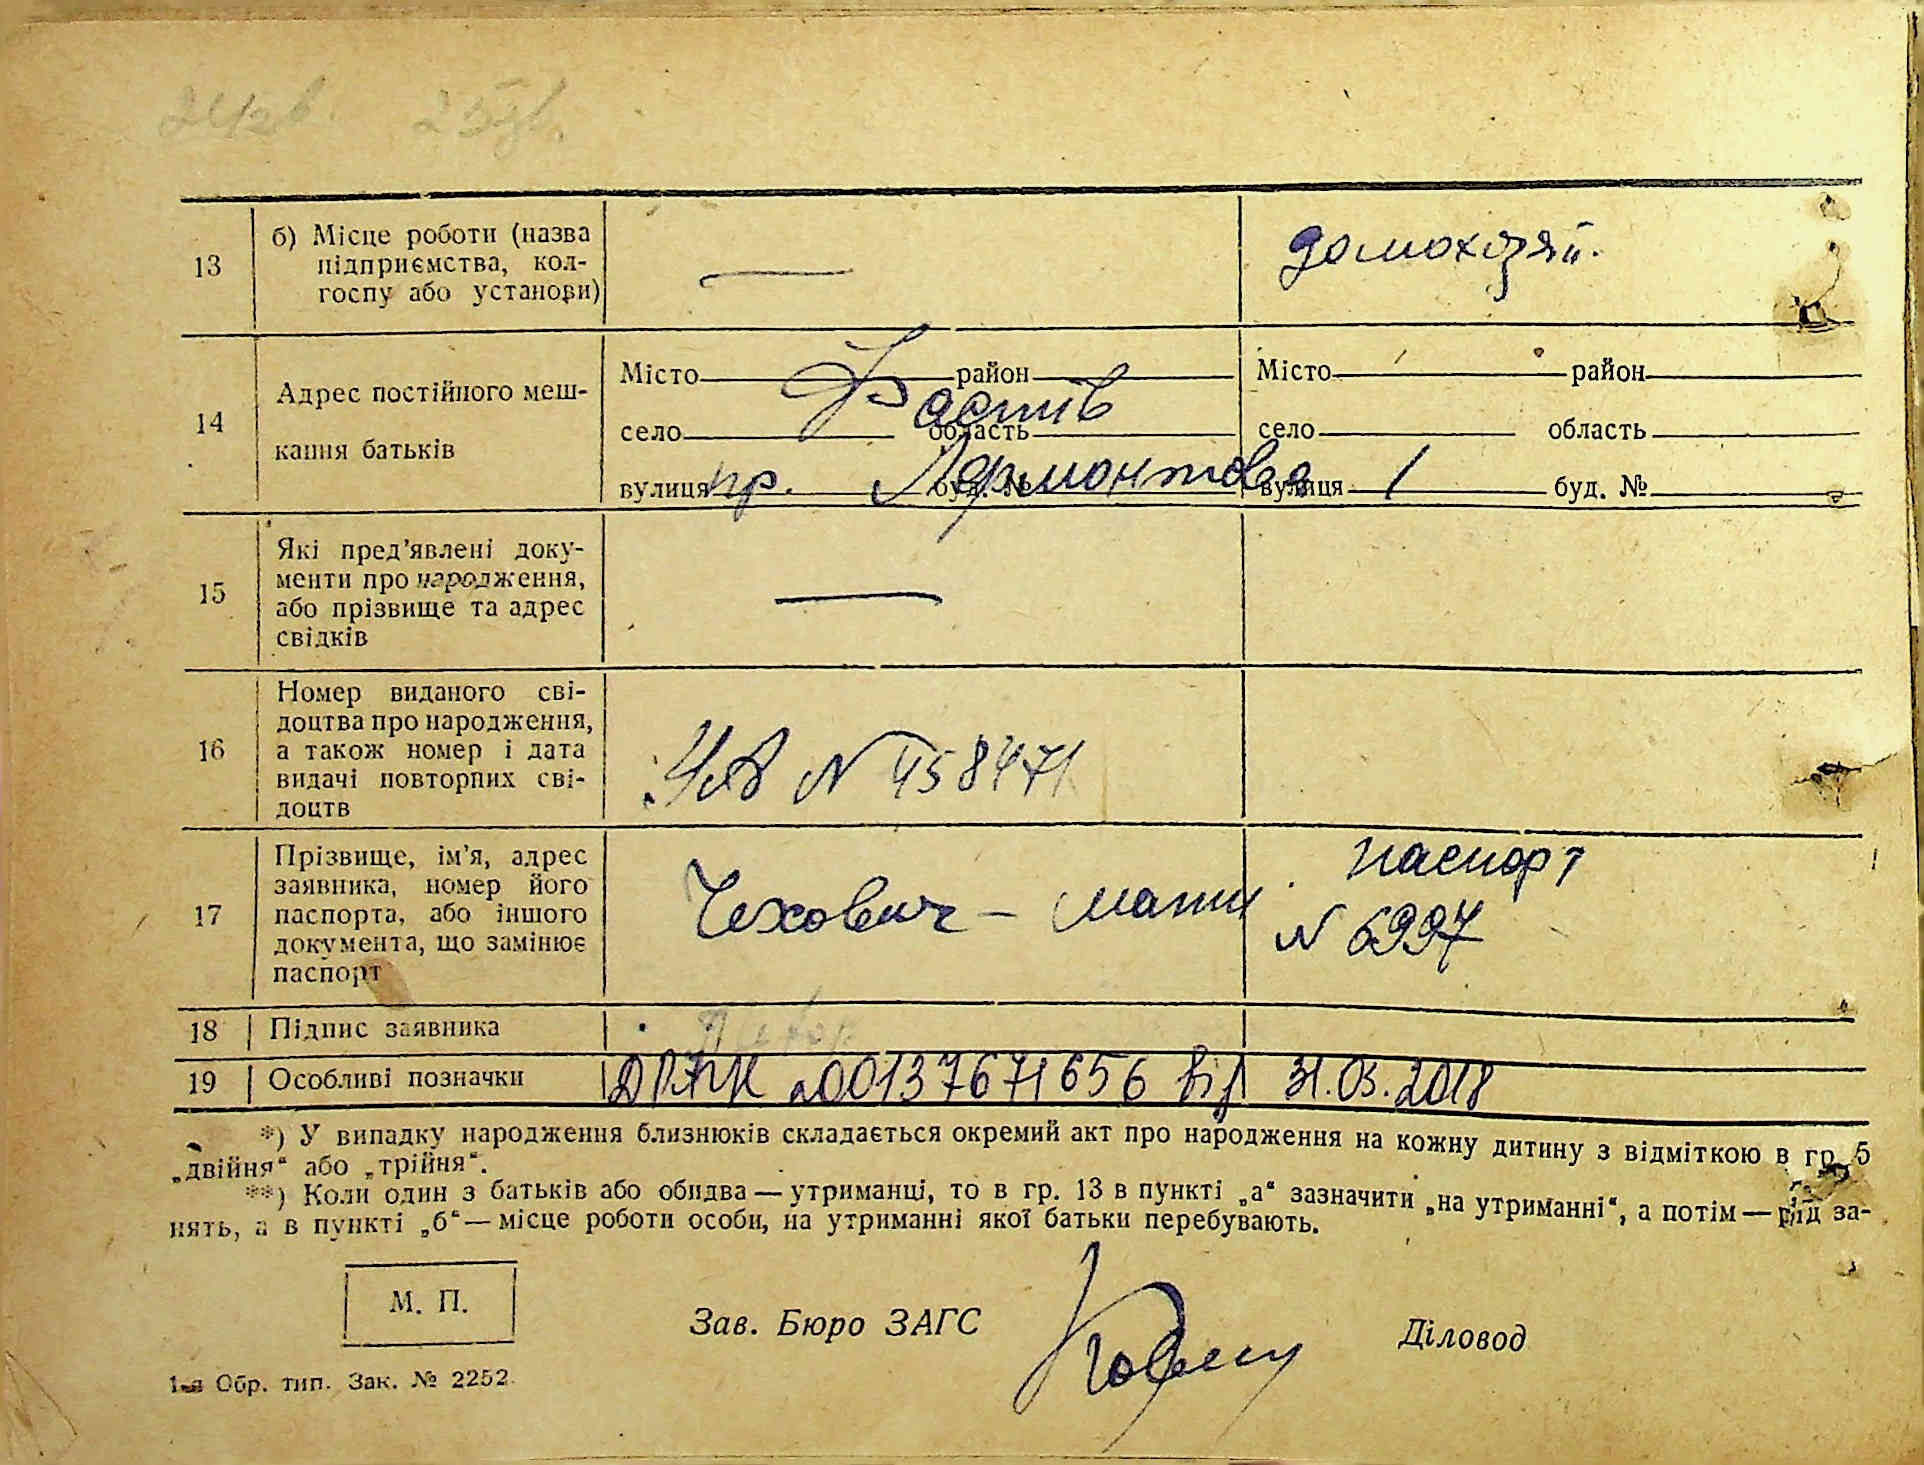 13
б) Місце роботи (назва
підприємства, кол-
госпу або установи)
—
домохазяй.
14
Адрес постійного меш-
кання батьків
Місто район
село область
вулиця буд. №
Фастів
пр. Лермонтова 1
Місто район
село область
вулиця буд. №
15
Які пред'явлені доку-
менти про народження,
або прізвище та адрес
свідків
—
16
Номер виданого сві-
доцтва про народження,
а також номер і дата
видачі повторних сві-
доцтв
N 458471
17
Прізвище, ім'я, адрес
заявника, номер його
паспорта, або іншого
документа, що замінює
паспорт
Чехович — мати
паспорт
N 6997
18 Підпис заявника
19 Особливі позначки
00137671656 від 31.03.2018
*) У випадку народження близнюків складається окремий акт про народження на кожну дитину з відміткою в гр. 5
„двійня" або „трійня".
**) Коли один з батьків або обидва — утриманці, то в гр. 13 в пункті „а" зазначити „на утриманні", а потім — рід за-
нять, а в пункті „б" — місце роботи особи, на утриманні якої батьки перебувають.
М. П.
Зав. Бюро ЗАГС
Діловод
1-а Обр. тип. Зак. № 2252